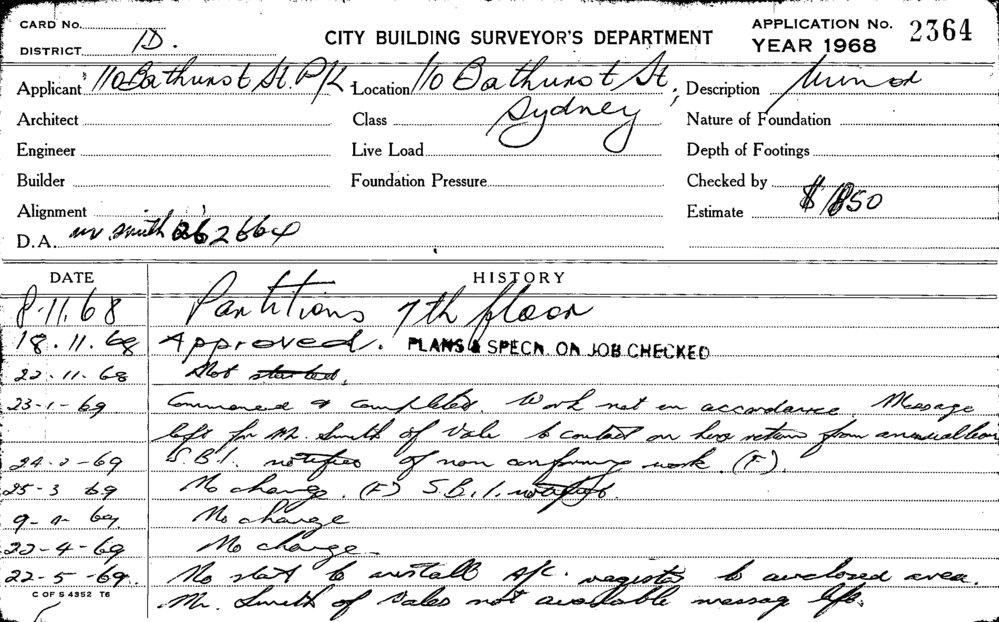 CARD No.
DISTRICT D.
CITY BUILDING SURVEYOR'S DEPARTMENT
APPLICATION No. 2364
YEAR 1968
Applicant 110 Bathurst St. P/L
Location 110 Bathurst St, Sydney
Description Minor
Architect
Class
Nature of Foundation
Engineer
Live Load
Depth of Footings
Builder
Foundation Pressure
Checked by
Alignment
Estimate $1850
D.A. Mr Smith 26 2664
DATE HISTORY
8.11.68 Partitions 7th floor
18.11.68 Approved. PLANS & SPECN. ON JOB CHECKED
22.11.68 Not started.
23-1-69 Commenced & completed. Work not in accordance. Message
left for Mr. Smith of Vale to contact on his return from annual leave
24-2-69 S.B.I. notified of non conforming work. (F).
25-3-69 No change. (F) S.B.I. notified.
9-4-69 No change
22-4-69 No change.
22-5-69. No start to install A/C. registers to enclosed area.
C OF S 4352 T6
Mr. Smith of Vales not available message left.